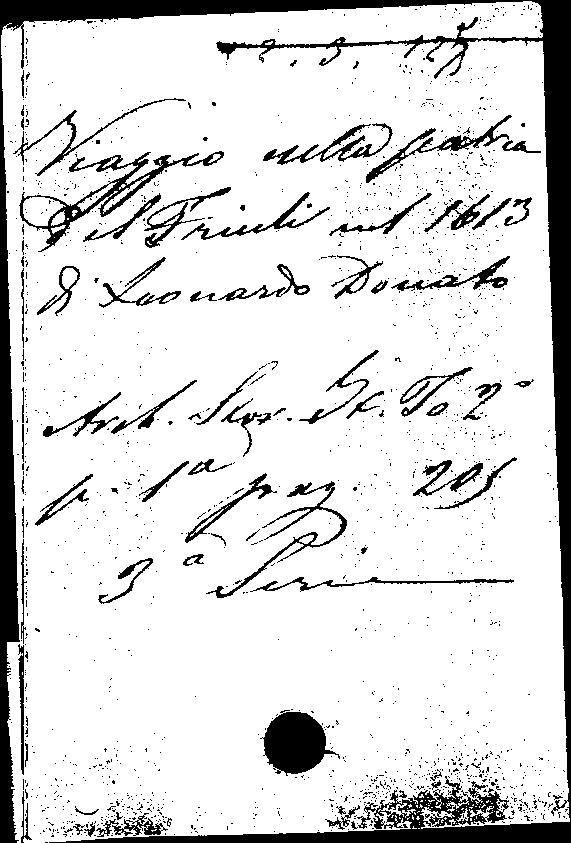 Viaggio nella patria
del Friuli nel 1613
di Leonardo Donato
Arch. Stor. It. To 2º
p. 1ª pag. 205
3ª Serie